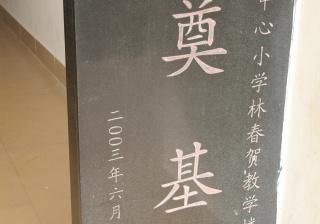 中心小学林春贺教学楼
奠基
二〇〇三年六月